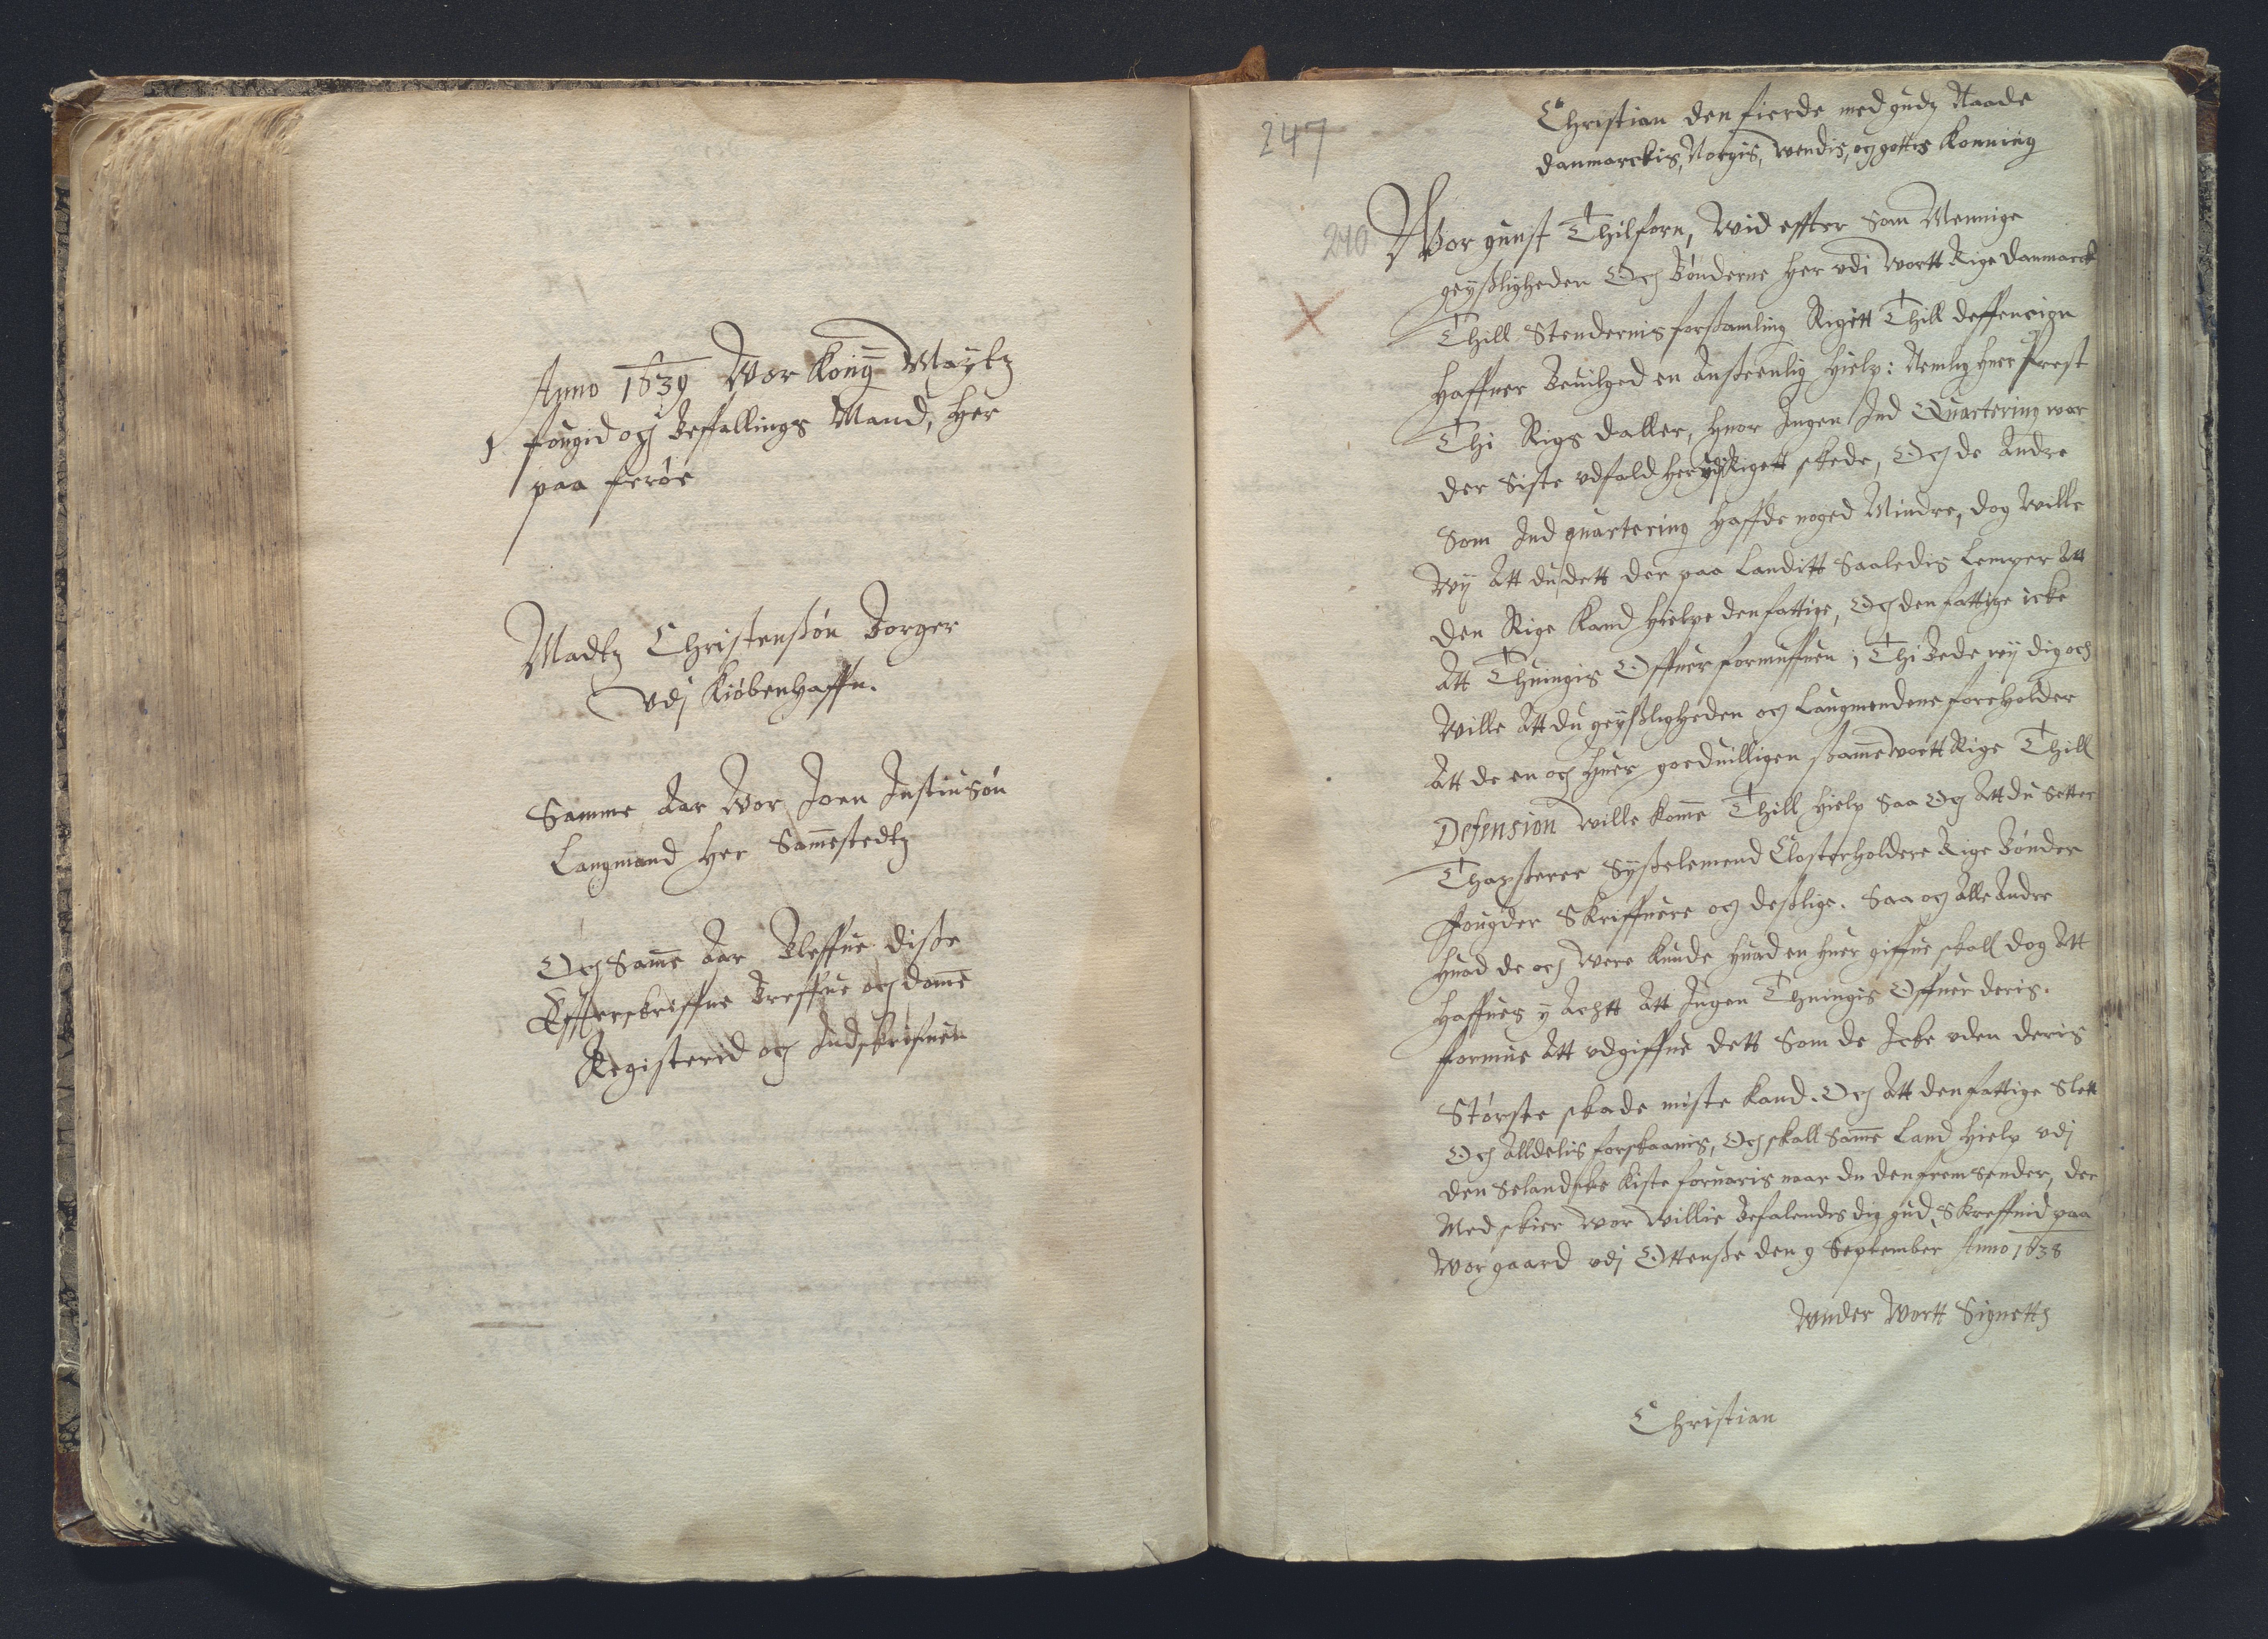 Anno 1639 War Koning Maytz
fougid och Beffallings Mand, her
paa ferøe
Madtz Christensßøn Borger
vdj Kiøbenhaffn.
Samme Aar War Joen Justinsøn
Laugmand her Sammestedtz
Och Samme Aar Bleffue disße
Effterskreffne Breffue och domme
Registerid och Indskrefuen
247
Christian den fierde med gudz Naade
danmarckis, Norgis, Wendis, og gottis Konning
240
Wor gunst Thilforn, Wid effter Som Mennige
geystligheden Och Bønderne her vdi Wortt Rige danmarck
Thill Stendernis forsamling Rigitt Thill deffension
Haffuer Beuilged en Anseenlig hielp: Nemlig huer Prest
Thi Rigs daller, huor Ingen Ind Quartering war
der Siste vdfald her vdj Rigett skede, Och de Andre
Som Ind quartering haffde noged Mindre, dog Wille
Wy Att du dett der paa Landitt Saaledis lemper Att
den Rige Kand hielpe den fattige, Och den fattige icke
Att Thuingis Offuer formuffuen; Thi Bede wy dig och
Wille Att du geystligheden och Laugmendene foreholder
Att de en och huer goeduilligen samme Wortt Rige Thill
Defension Wille komme Thill hielp Saa Och Att du Setter
Sysßelemend Closterholdere Rige Bønder
ffougder Skriffuere og deslige. Saa og Alle Andre
huad de och Were Kunde huad en huer giffue skall dog Att
haffues y Achtt Att Ingen Thuingis Offuer deris.
formue Att vdgiffue dett Som de Icke vden deris
Største skade miste Kand. Och Att den fattige Slett
Och Alldelis forskaanis, Och skall Samme Land hielp vdj
den Selandske Kiste foruaris naar du den fremsender, der
Med skier Wor Willie Befalendis dig gud, Skreffuid paa
Wor gaard vdj Ottensße den 9 September Anno 1638
Wnder Wortt Signettz
Christian